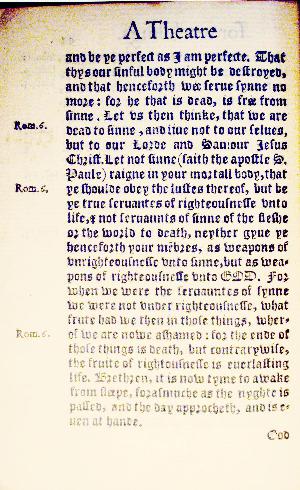 A Theatre
and be ye perfect as I am perfecte. That
thys our sinful body might be destroyed,
and that henceforth we serue synne no
more: for he that is dead, is free from
sinne. Let vs then thinke, that we are
Rom.6. dead to sinne, and liue not to our selues,
but to our Lorde and Sauiour Jesus
Christ. Let not sinne (saith the apostle S.
Paule) raigne in your mortall body, that
Rom.6. ye shoulde obey the lustes thereof, but be
ye true seruantes of righteousnesse vnto
life, & not seruaunts of sinne of the fleshe
or the world to death, neyther gyue ye
henceforth your mēbres, as weapons of
vnrighteousnesse vnto sinne, but as wea-
pons of righteousnesse vnto GOD. For
when we were the seruauntes of synne
we were not vnder righteousnesse, what
frute had we then in those things, wher-
Rom.6. of we are nowe ashamed: for the ende of
those things is death, but contrarywise,
the fruite of rightousnesse is euerlasting
life. Brethren, it is now tyme to awake
from sleepe, forasmuche as the nyghte is
passed, and the day approcheth, and is e-
uen at hande.
God